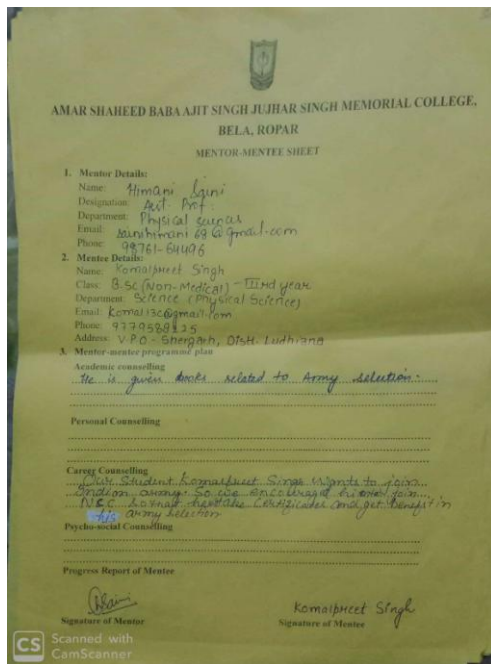 AMAR SHAHEED BABA AJIT SINGH JUJHAR SINGH MEMORIAL COLLEGE,
BELA, ROPAR
MENTOR-MENTEE SHEET
1. Mentor Details:
Name: Himani Saini
Designation: Asst. Prof.
Department: Physical sciences
Email: @gmail.com
Phone: 98761-64496
2. Mentee Details:
Name: Komalpreet Singh
Class: B.Sc (Non-Medical) - IIIrd year
Department: Science (Physical Science)
Email: Komal13c@gmail.com
Phone:
Address: V.P.O - Shergarh, Distt. Ludhiana
3. Mentor-mentee programme plan
Academic counselling
He is given books related to Army selection.
Personal Counselling
Career Counselling
Our Student Komalpreet Singh wants to join
Indian army. So we encouraged him to join
NCC so that he take Certificates and get benefit in
his army selection
Psycho-social Counselling
Progress Report of Mentee
Signature of Mentor
Komalpreet Singh
Signature of Mentee
CS Scanned with
CamScanner